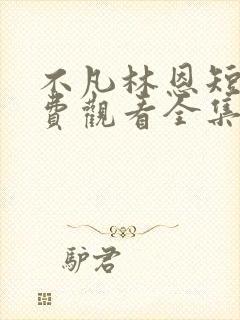 不凡林恩短
費觀看全集
驴君